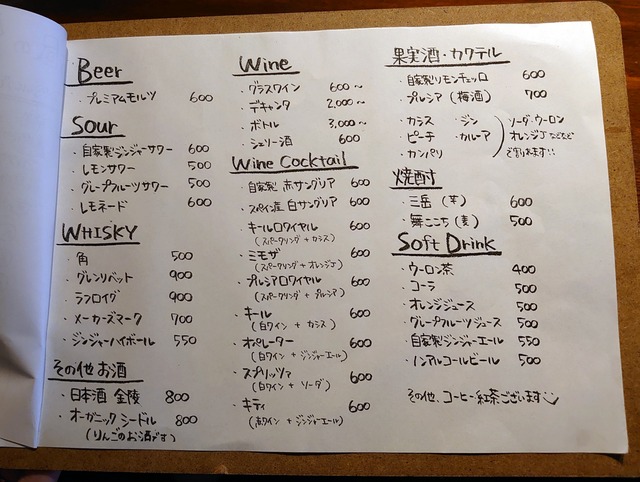 Beer
・プレミアムモルツ 600
Sour
・自家製ジンジャーサワー 600
・レモンサワー 500
・グレープフルーツサワー 500
・レモネード 600
WHISKY
・角 500
・グレンリベット 900
・ラフロイグ 900
・メーカーズマーク 700
・ジンジャーハイボール 550
その他お酒
・日本酒 金陵 800
・オーガニックシードル 800
(りんごのお酒です)
Wine
・グラスワイン 600〜
・デキャンタ 2,000〜
・ボトル 3,000〜
・シェリー酒 600
Wine Cocktail
・自家製 赤サングリア 600
・スペイン産 白サングリア 600
・キールロワイヤル 600
(スパークリング+カシス)
・ミモザ 600
(スパークリング+オレンジJ)
・プルシアロワイヤル 600
(スパークリング+プルシア)
・キール 600
(白ワイン+カシス)
・オペレーター 600
(白ワイン+ジンジャーエール)
・スプリッツァ 600
(白ワイン+ソーダ)
・キティ 600
(赤ワイン+ジンジャーエール)
果実酒・カクテル
・自家製リモンチェッロ 600
・プルシア(梅酒) 700
・カシス ・ジン ソーダ・ウーロン
・ピーチ ・カルーア オレンジJなどなど
・カンパリ で割れます!!
焼酎
・三岳(芋) 600
・舞ここち(麦) 500
Soft Drink
・ウーロン茶 400
・コーラ 500
・オレンジジュース 500
・グレープフルーツジュース 500
・自家製ジンジャーエール 550
・ノンアルコールビール 500
その他、コーヒー紅茶ございます